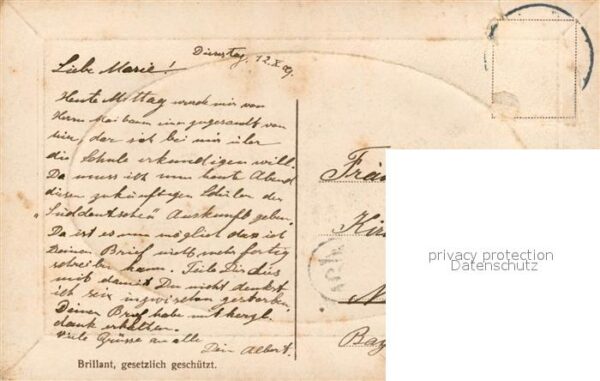 Dienstag, 12.X.09.
Liebe Marie!
Heute Mittag wurde mir von
Herrn Maibaum einer zugesandt von
hier, der sich bei mir über
die Schule erkundigen will.
Da muss ich nun heute Abend
diesem zukünftigen Schüler der
"Süddeutschen" Auskunft geben.
Da ist es nun möglich das ich
Deinen Brief nicht mehr fertig
schreiben kann. Teile Dir dies
mit damit Du nicht denkst
ich sei inzwischen gestorben.
Deinen Brief habe mit herzl.
dank erhalten.
Viele Grüsse an alle
Dein Albert.
Brillant, gesetzlich geschützt.
privacy protection
Datenschutz